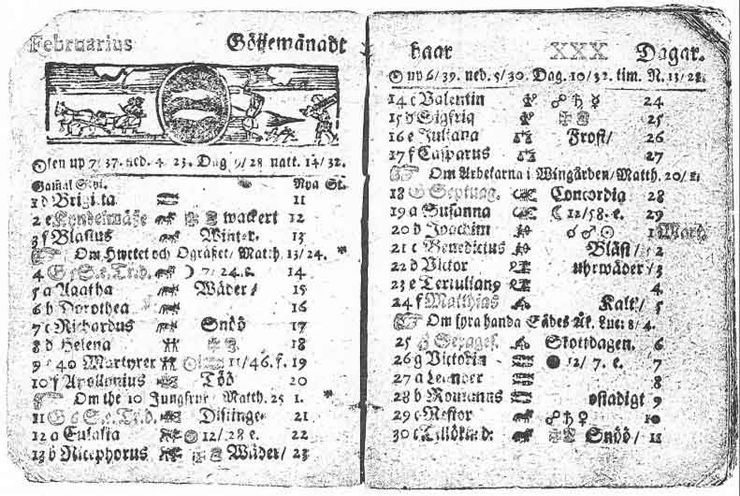 Februarius Göijemånadt
Solen up 7/37. ned. 4. 23. Dag 9/28 natt. 14/32.
Gamal Styl. Nya St.
1 d Brigitta 11
2 e Kyndelmässe wackert 12
3 f Blasius Winter. 13
Om Hwetet och Ogräset/ Matth. 13/24. *
4 G 5 S. e. Tr. D. 7/24. f. 14
5 a Agatha Wäder/ 15
6 b Dorothea 16
7 c Richardus Snöö 17
8 d Helena 18
9 e 40 Martyrer 11/46. f. 19
10 f Apollonius Töö 20
Om the 10 Jungfrur Matth. 25 1. *
11 G 6 S. e. Tr. D. Distinge 21
12 a Eulalia 12/28 e. 22
13 b Nicephorus Wäder/ 23
haar XXX Dagar.
☉ up 6/39. ned. 5/30. Dag. 10/32. tim. N. 13/28.
14 c Valentin ☍ ♄ ☿ 24
15 d Sigfrid 25
16 e Juliana Frost/ 26
17 f Casparus 27
Om Arbetarna i Wingården/ Matth. 20/1.
18 G Septuag. Concordia 28
19 a Susanna ☾ 12/58. e. 29
20 b Joachim ☌ ♂ ☉ 1 Mart.
21 c Benedictus Bläst/ 2
22 d Victor uhrwäder/ 3
23 e Tertulianq 4
24 f Matthias Kalt/ 5
Om fyra handa Sädes Åk. Luc: 8/4.
25 G Sexages. Skottdagen. 6
26 g Victorin ● 12/7. e. 7
27 a Leander 8
28 b Romanus ostadigt 9
29 c Nestor ☍ ♄ ♀ 10
30 c Tillökind: Snöö/ 11